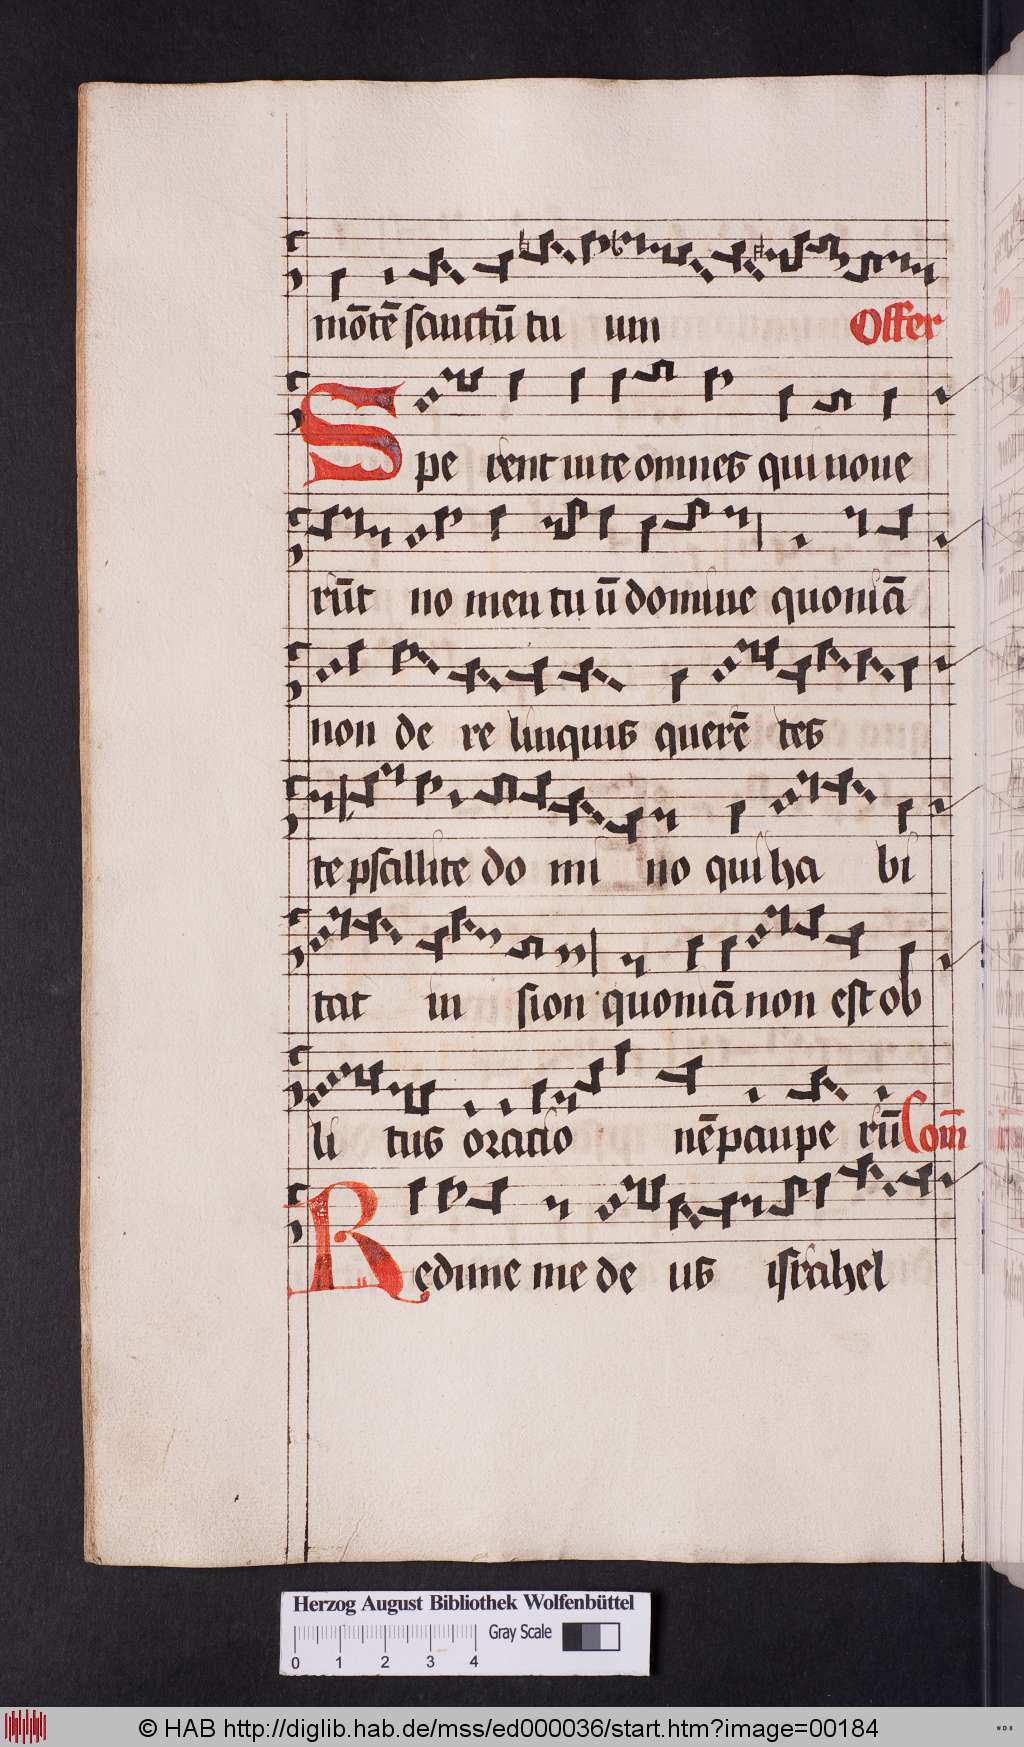 mōtē sanctū tu um Offer
Spe rent in te omnes qui noue
rūt no men tu ū domine quoniā
non de re linquis querē tes
te psallite do mi no qui ha bi
tat in sion quoniā non est ob
li tus oratio nē paupe rū Com̄
Redime me de us israhel
Herzog August Bibliothek Wolfenbüttel
Gray Scale
0 1 2 3 4
© HAB http://diglib.hab.de/mss/ed000036/start.htm?image=00184